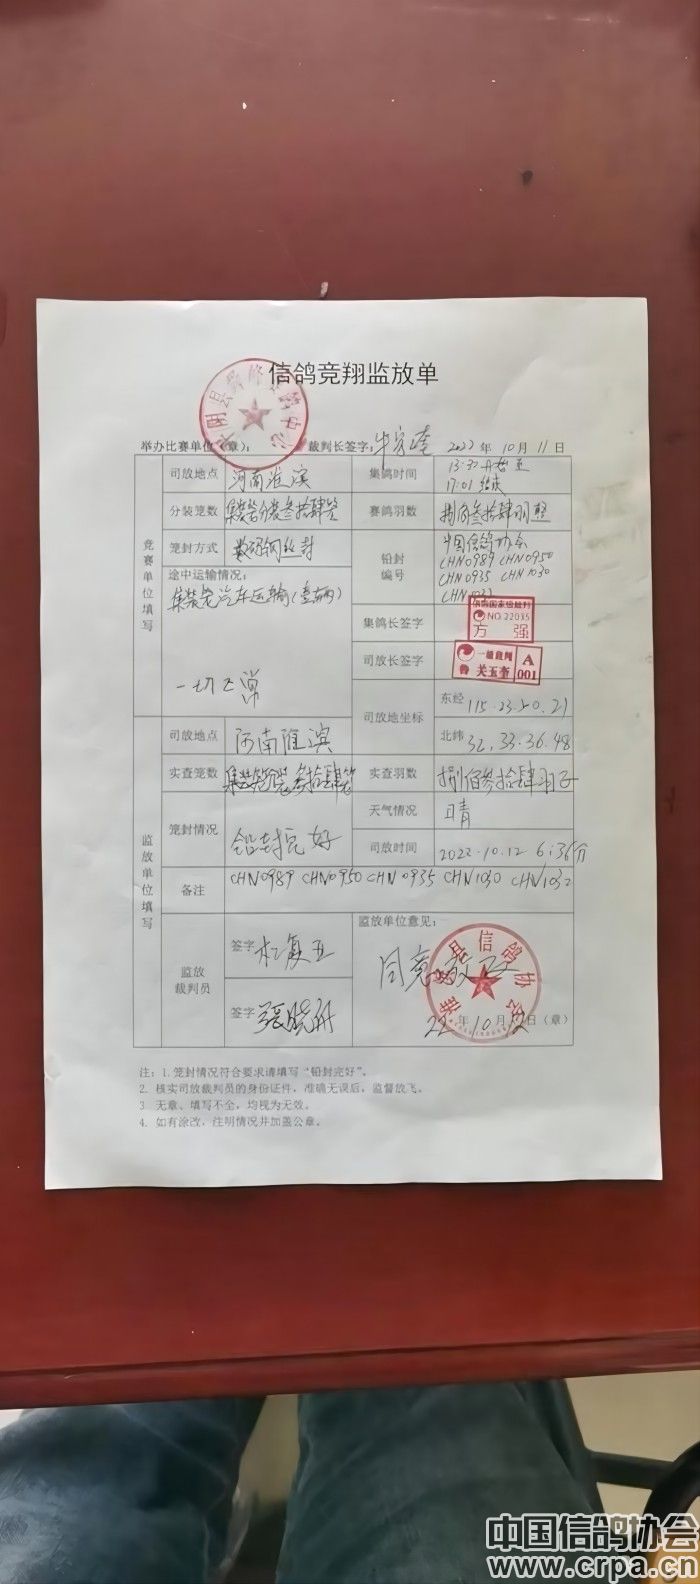 信鸽竞翔监放单
举办比赛单位（章）： 裁判长签字： 2022 年 10 月 11 日
竞赛单位填写
司放地点 河南淮滨 集鸽时间 13:30开始至
17:01结束
分装笼数 集装笼分装叁拾肆笼 赛鸽羽数 捌佰叁拾肆羽整
笼封方式 数码钢丝封 铅封编号 中国信鸽协会
CHN0989 CHN0950
CHN0935 CHN1030
CHN1032
途中运输情况：
集装笼汽车运输（壹辆）
一切正常
集鸽长签字 信鸽国家级裁判
NO.22035
方强
司放长签字 鲁 一级裁判 A
关玉奎 001
司放地坐标 东经 115.23.50.21
北纬 32.33.36.48
监放单位填写
司放地点 河南淮滨
实查笼数 集装笼 叁拾肆笼 实查羽数 捌佰叁拾肆羽
笼封情况 铅封完好 天气情况 晴
司放时间 2022.10.12 6:36分
备注 CHN0989 CHN0950 CHN0935 CHN1030 CHN1032
监放裁判员
签字
签字 张晓舟
监放单位意见：
同意放飞
淮滨县信鸽协会
22 年 10 月 12 日（章）
注：1. 笼封情况符合要求请填写“铅封完好”。
2. 核实司放裁判员的身份证件，准确无误后，监督放飞。
3. 无章、填写不全，均视为无效。
4. 如有涂改，注明情况并加盖公章。
中国信鸽协会
www.crpa.cn